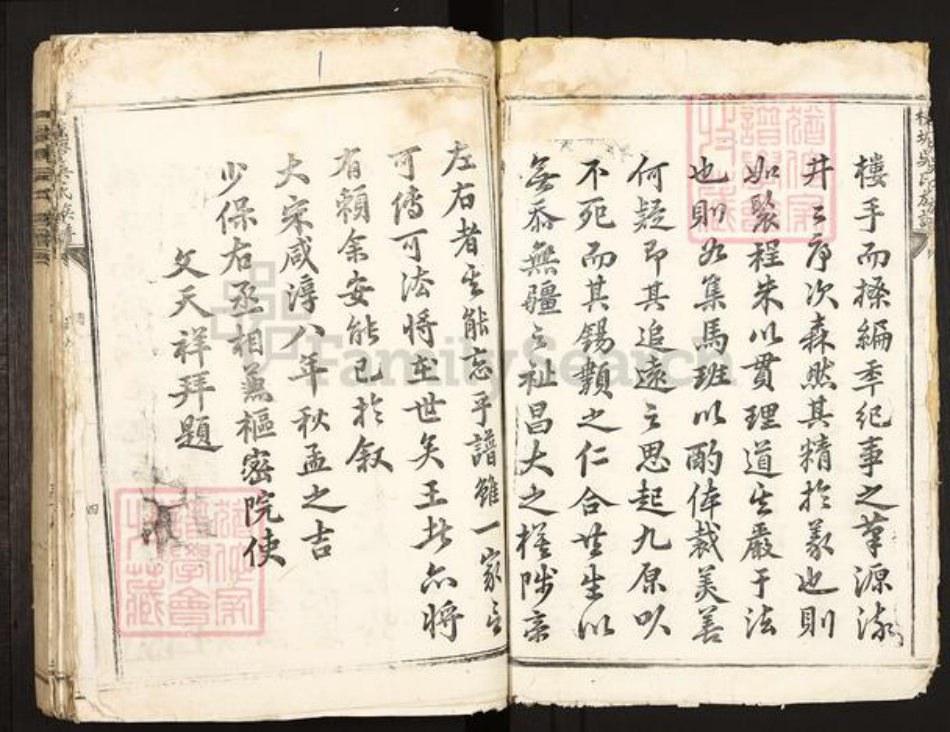 樓手而操編季紀事之筆源流
井=序次森然其精於義也則
如製程朱以貫理道其嚴于法
也則如集馬班以酌体裁美善
何疑即其追遠之思起九原以
不死而其錫類之仁合世生以
無忝無疆之祉昌大之 陟亲
左右者其能忘乎譜雖一家言
可傳可法將在世矣王此亦將
有賴余安能已於叙
大宋咸淳八年秋孟之吉
少保右丞相兼樞密院使
文天祥拜題
四
FamilySearch